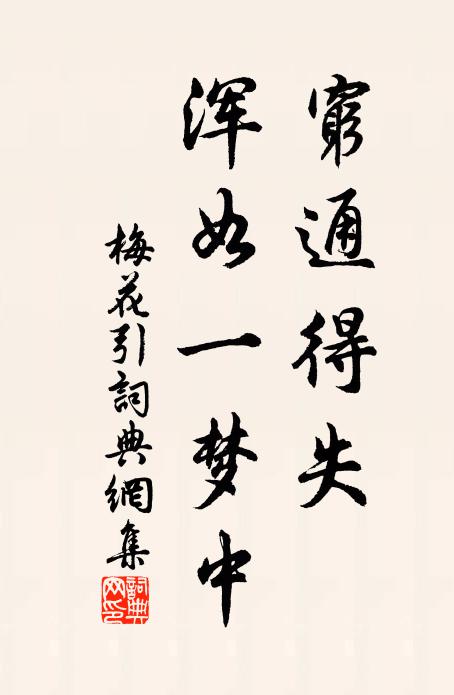 窮通得失
浑如一梦中
梅花引詞典網集
詞典网印